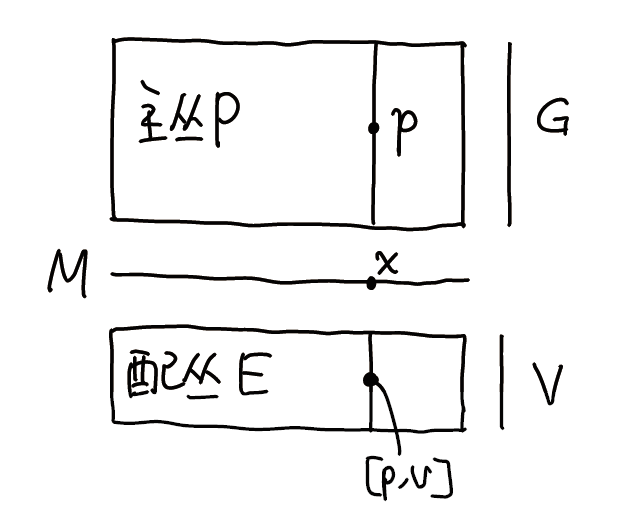 主丛P p G
M x
配丛E V
[p,v]